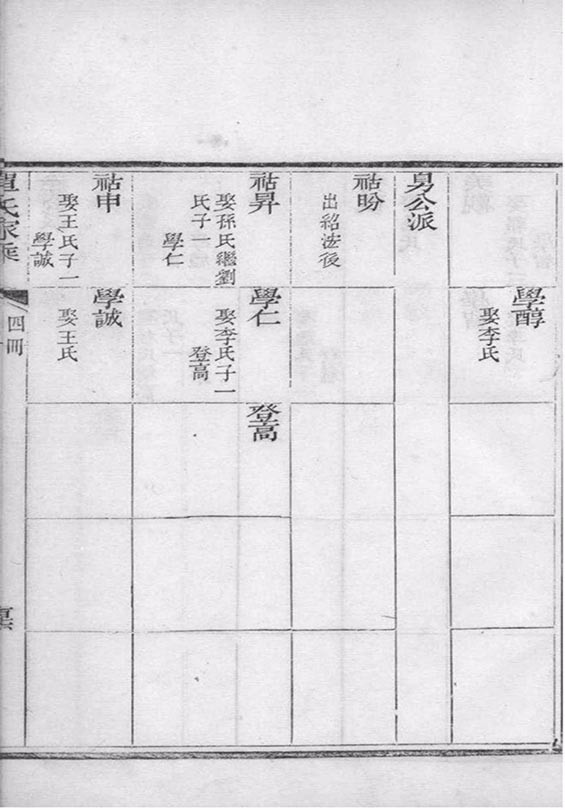 學醇
娶李氏
勇公派
祜昐
出紹法後
祜昇
娶孫氏繼劉
氏子一
學仁
學仁
娶李氏子一
登高
登高
祜申
娶王氏子一
學誠
學誠
娶王氏
氏家乘
四冊